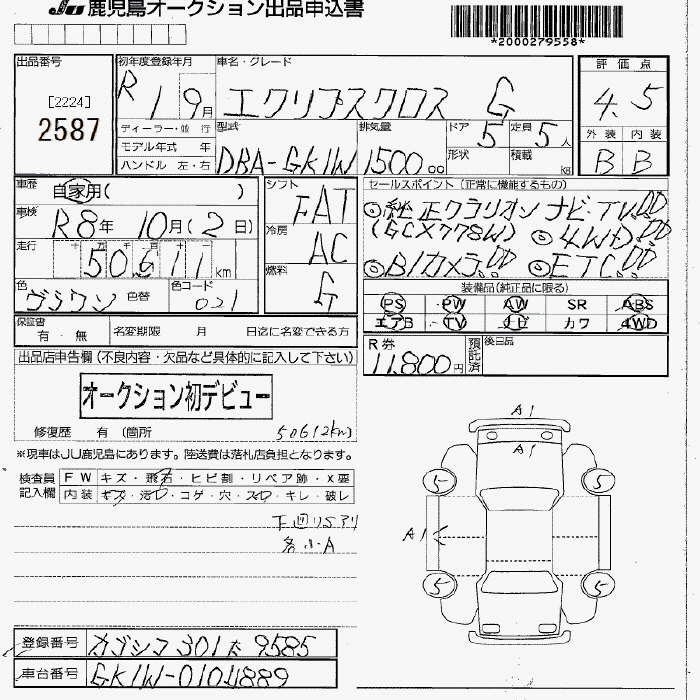 JU 鹿児島オークション出品申込書
*2000279558*
出品番号
[2224]
2587
初年度登録年月
R1 9月
車名・グレード
エクリプスクロス G
評価点
4.5
外装 内装
B B
ディーラー・並行
モデル年式 年
ハンドル 左・右
型式
DBA-GK1W
排気量
1500cc
ドア 5
定員 5人
形状
積載 kg
車歴
自家用( )
車検
R8年 10月(2日)
走行
十 万 千 百 十 一
50611km
色
ブラウン
色替
色コード
021
シフト
FAT
冷房
AC
燃料
G
セールスポイント(正常に機能するもの)
◎純正クラリオン ナビ・TV
(GCX778W) ◎4WD
◎Bカメラ ◎ETC
装備品(純正品に限る)
PS PW AW SR ABS
エアB TV ナビ カワ 4WD
保証書
有・無
名変期限 月 日迄に名変できる方
R券
11,800円
預託済
後日品
出品店申告欄(不良内容・欠品など具体的に記入して下さい)
オークション初デビュー
修復歴 有(箇所 50612km)
※現車はJU鹿児島にあります。陸送費は落札店負担となります。
検査員記入欄
FW キズ・飛石・ヒビ割・リペア跡・X要
内装 キズ・汚レ・コゲ・穴・スレ・キレ・破レ
下回りSアリ
各小A
A1
A1
5 5
A1
5 5
登録番号
カゴシマ 301 た 9585
車台番号
GK1W-0104889